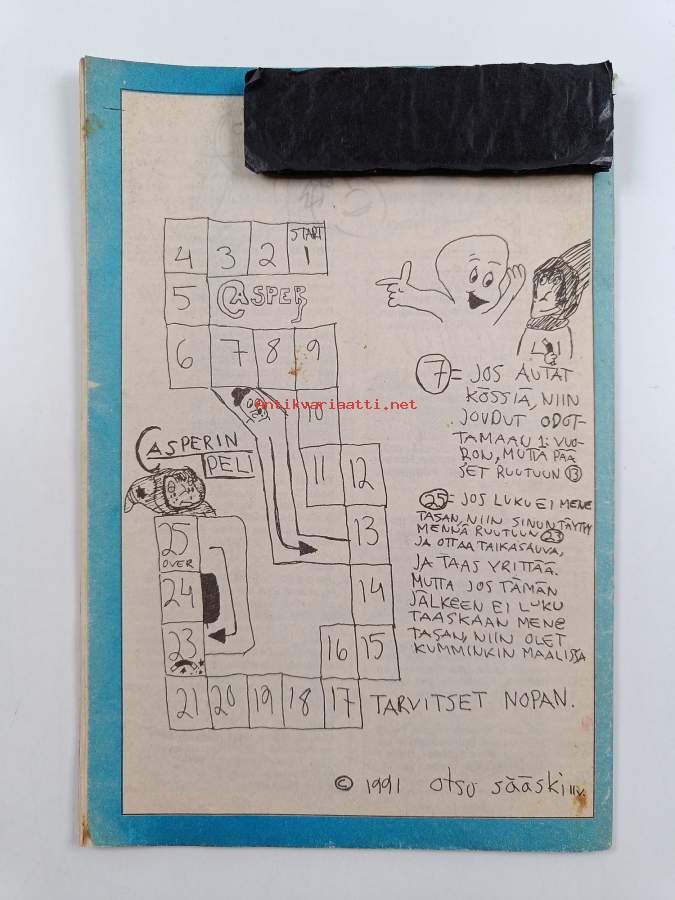 START
4 3 2 1
5 CASPER
6 7 8 9
10
Antikvariaatti.net
CASPERIN
PELI
11 12
13
14
16 15
25
OVER
24
23
21 20 19 18 17
TARVITSET NOPAN.
7 = JOS AUTAT
KÖSSIÄ, NIIN
JOUDUT ODOT-
TAMAAN 1: VUO-
RON, MUTTA PÄÄ
SET RUUTUUN 13
25 = JOS LUKU EI MENE
TASAN, NIIN SINUN TÄYTYY
MENNÄ RUUTUUN 23
JA OTTAA TAIKASAUVA,
JA TAAS YRITTÄÄ.
MUTTA JOS TÄMÄN
JÄLKEEN EI LUKU
TAASKAAN MENE
TASAN, NIIN OLET
KUMMINKIN MAALISSA
© 1991 otso sääski 11v.